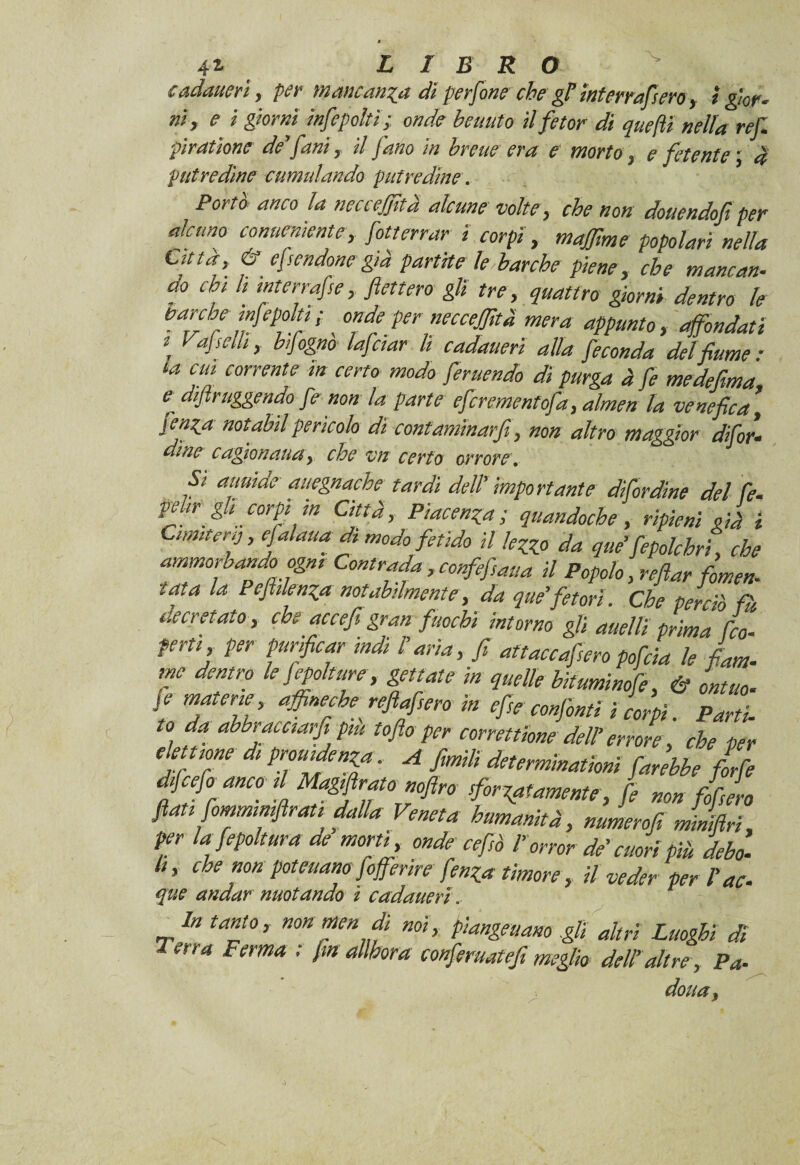 42 LIBRO
cadaueri, per mancanza di perſone che gl' interraſsero, i gior-
ni, e i giorni inſepolti; onde beuuto il fetor di queſti nella reſ-
piratione de' ſani, il ſano in breue era e morto, e fetente; à
putredine cumulando putredine.
Portò anco la necceſſità alcune volte, che non douendoſi per
alcuno conueniente, ſotterrar i corpi, maſſime popolari nella
Città, & eſsendone già partite le barche piene, che mancan-
do chi li interraſse, ſtettero gli tre, quattro giorni dentro le
barche inſepolti; onde per necceſſità mera appunto, affondati
i Vaſselli, biſognò laſciar li cadaueri alla ſeconda del fiume:
la cui corrente in certo modo ſeruendo di purga à ſe medeſima,
e diſtruggendo ſe non la parte eſcrementoſa, almen la venefica,
ſenza notabil pericolo di contaminarſi, non altro maggior diſor-
dine cagionaua, che vn certo orrore.
Si auuide auegnache tardi dell' importante diſordine del ſe-
pelir gli corpi in Città, Piacenza; quandoche, ripieni già i
Cimiterij, eſalaua di modo fetido il lezzo da que' ſepolchri, che
ammorbando ogni Contrada, confeſsaua il Popolo, reſtar fomen-
tata la Peſtilenza notabilmente, da que' fetori. Che perciò fù
decretato, che acceſi gran fuochi intorno gli auelli prima ſco-
perti, per purificar indi l' aria, ſi attaccaſsero poſcia le fiam-
me dentro le ſepolture, gettate in quelle bituminoſe, & ontuo-
ſe materie, affineche reſtaſsero in eſse conſonti i corpi. Parti-
to da abbracciarſi più toſto per correttione dell' errore, che per
elettione di prouidenza. A ſimili determinationi ſarebbe forſe
diſceſo anco il Magiſtrato noſtro sforzatamente, ſe non foſsero
ſtati ſomminiſtrati dalla Veneta humanità, numeroſi miniſtri,
per la ſepoltura de' morti, onde ceſsò l' orror de' cuori più debo-
li, che non poteuano ſofferire ſenza timore, il veder per l' ac-
que andar nuotando i cadaueri.
In tanto, non men di noi, piangeuano gli altri Luoghi di
Terra Ferma; ſin allhora conſeruateſi meglio dell' altre, Pa-
doua,